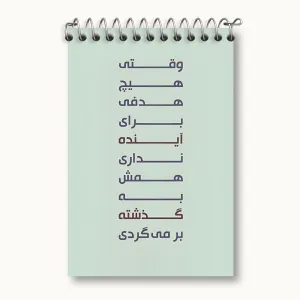 وقتی
هیچ
هدفی
برای
آینده
نداری
همش
به
گذشته
بر می‌گردی